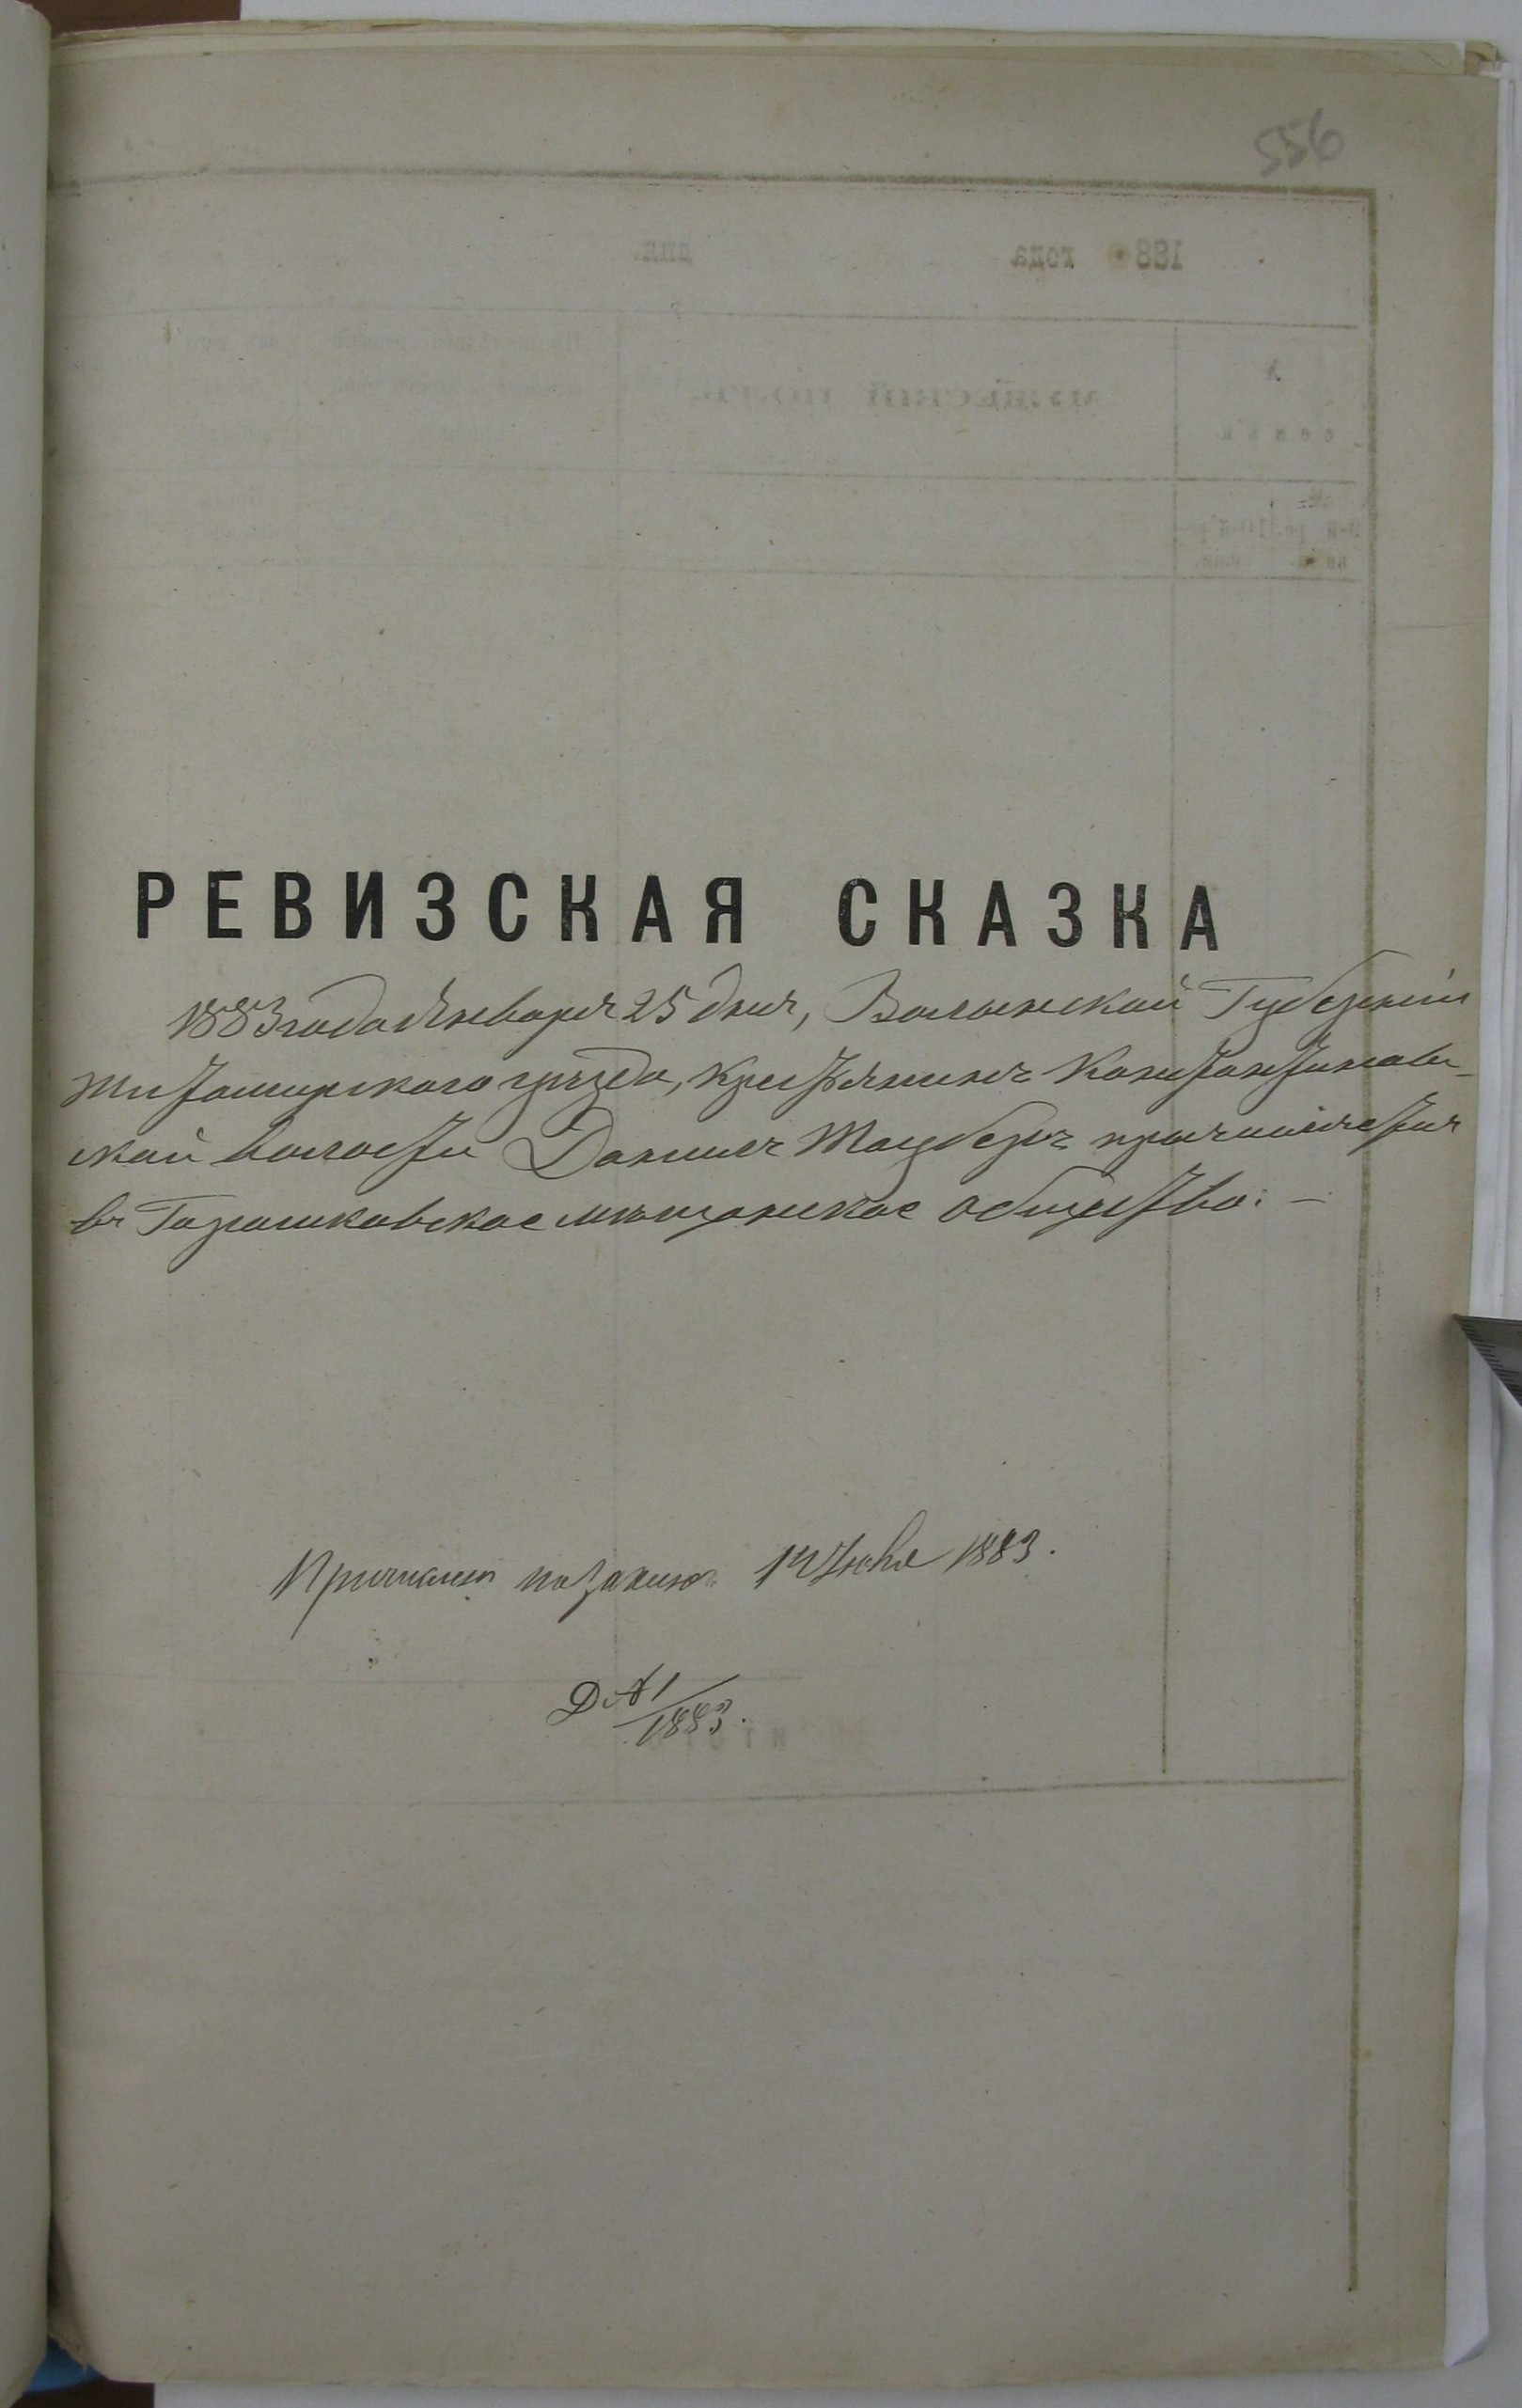 556
РЕВИЗСКАЯ СКАЗКА
1883 года Января 25 дня, Волынской Губернiи
Житомирского уѣзда, крестьянинъ Константинов-
ской волости Данилъ Тауберъ причисляется
въ Горошковское мѣщанское общество: —
Причислен по закону 1883.
1883.